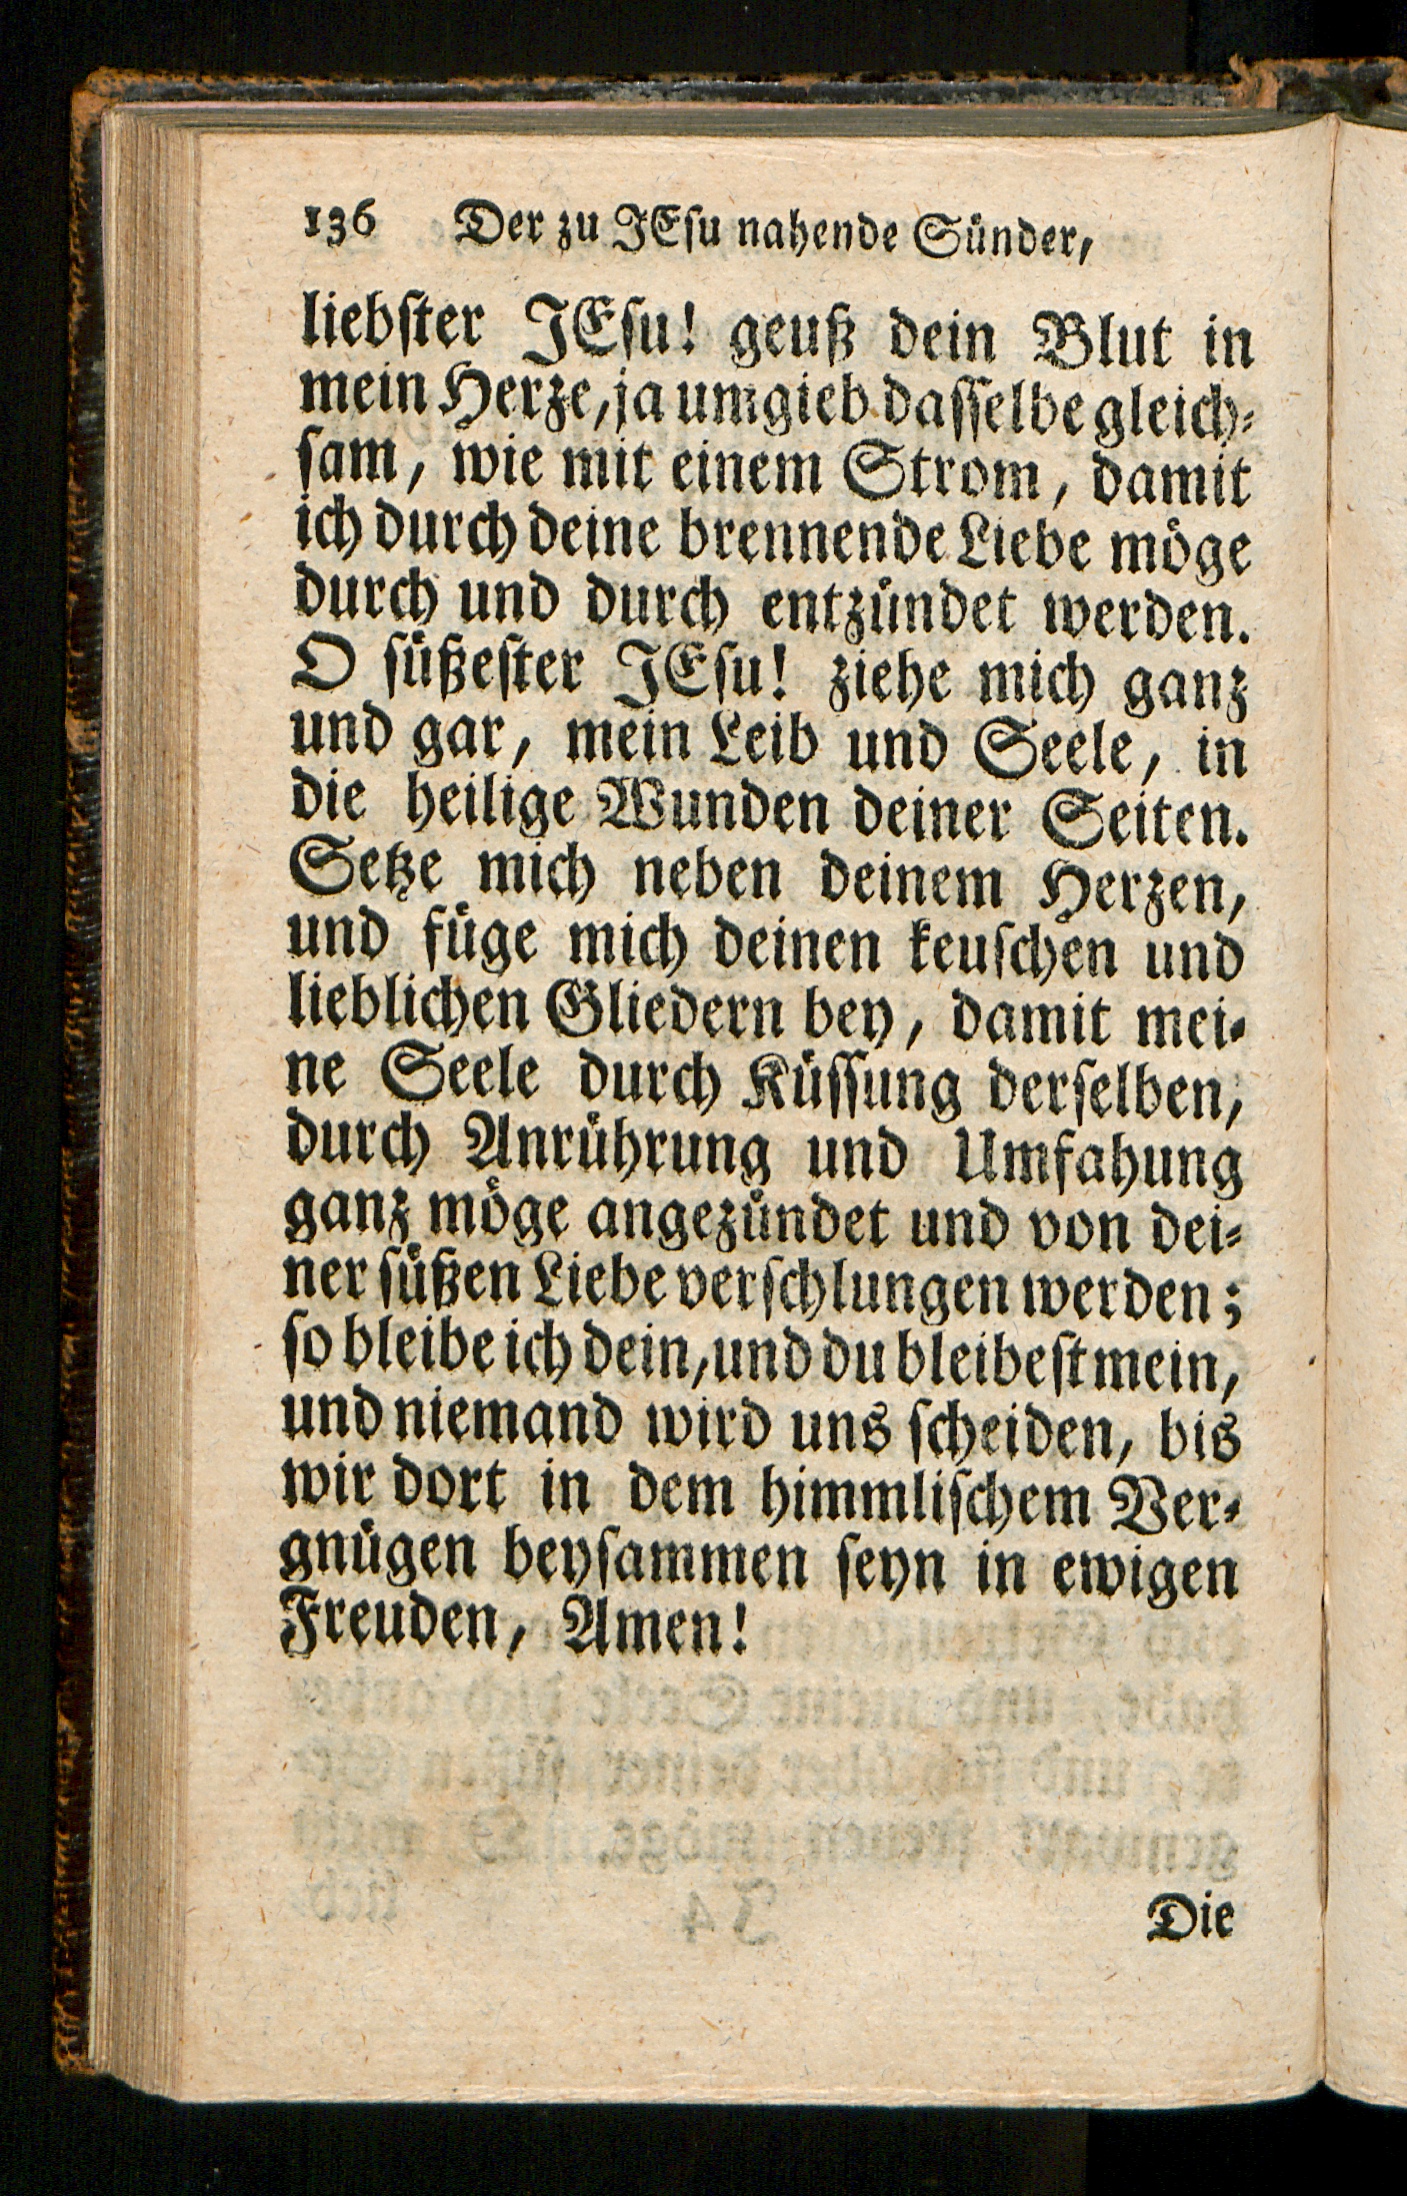 136 Der zu JEſu nahende Sünder,
liebſter JEſu! geuß dein Blut in
mein Herze, ja umgieb daſſelbe gleich⸗
ſam, wie mit einem Strom, damit
ich durch deine brennende Liebe möge
durch und durch entzündet werden.
O ſüßeſter JEſu! ziehe mich ganz
und gar, mein Leib und Seele, in
die heilige Wunden deiner Seiten.
Setze mich neben deinem Herzen,
und füge mich deinen keuſchen und
lieblichen Gliedern bey, damit mei⸗
ne Seele durch Küſſung derſelben,
durch Anrührung und Umfahung
ganz möge angezündet und von dei⸗
ner ſüßen Liebe verſchlungen werden;
ſo bleibe ich dein, und du bleibeſt mein,
und niemand wird uns ſcheiden, bis
wir dort in dem himmliſchem Ver⸗
gnügen beyſammen ſeyn in ewigen
Freuden, Amen!
Die